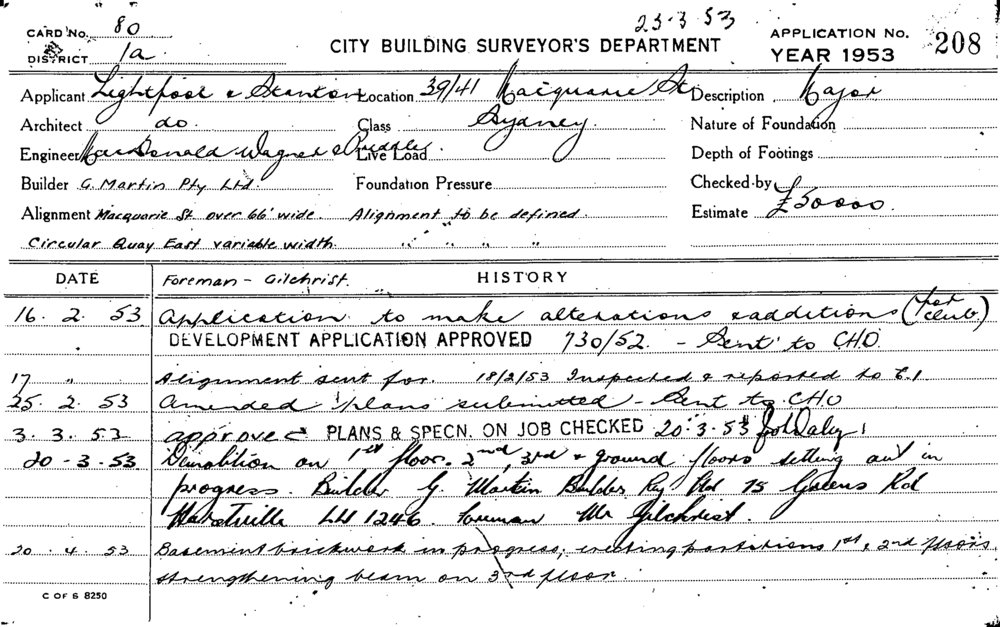 CARD No. 80
23-3-53
CITY BUILDING SURVEYOR'S DEPARTMENT
APPLICATION No. 208
DISTRICT 1a
YEAR 1953
Applicant Lightfoot & Stanton Location 39/41 Macquarie St. Description Major
Architect do. Class Sydney. Nature of Foundation
Engineer MacDonald Wagner & Priddle Live Load Depth of Footings
Builder G. Martin Pty Ltd. Foundation Pressure Checked by
Estimate £50000.
Alignment Macquarie St over 66' wide Alignment to be defined.
Circular Quay East variable width. " " " "
DATE Foreman - Gilchrist. HISTORY
16. 2. 53 Application to make alterations & additions (for club)
DEVELOPMENT APPLICATION APPROVED 730/52. - Sent to CHO.
17 " Alignment sent for. 18/2/53 Inspected & reported to C.I.
25. 2. 53 Amended plans submitted - Sent to CHO
3. 3. 53 approved PLANS & SPECN. ON JOB CHECKED 20.3.53
20-3-53 Demolition on 1st floor. 2nd, 3rd & ground floors setting out in
progress. Builder G. Martin Builders Pty Ltd 75 Greens Rd
Hurstville LU 1246. Foreman Mr Gilchrist.
20. 4. 53 Basement brickwork in progress; erecting partations 1st & 2nd floors.
strengthening beam on 3rd floor.
C OF S 8250